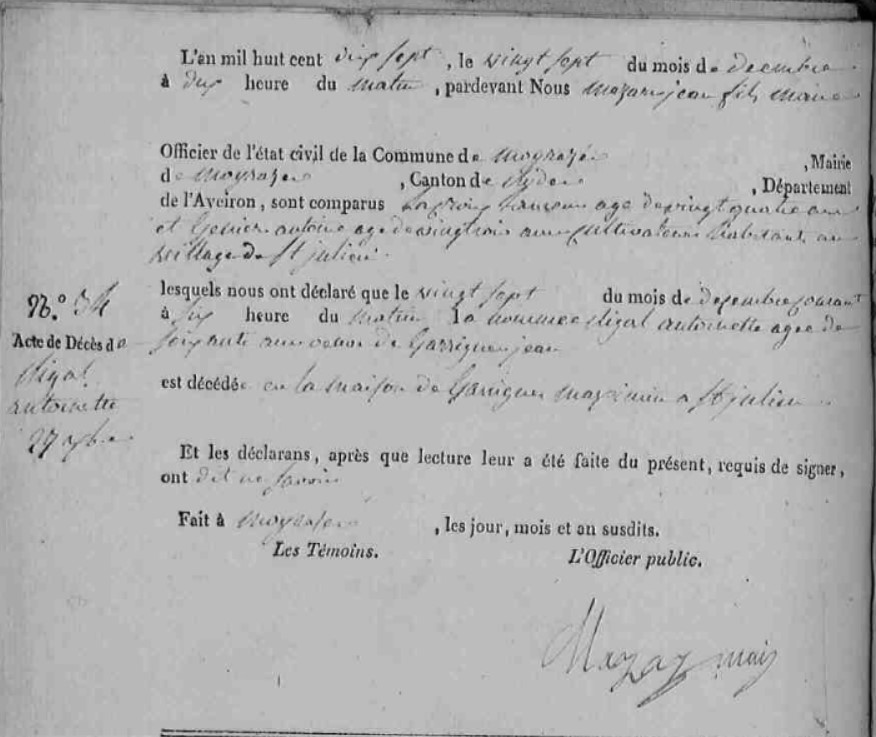 L'an mil huit cent dix sept, le vingt sept du mois de decembre
à dix heure du matin, pardevant Nous Mazars jean fils maire
Officier de l'état civil de la Commune de moyrazés, Mairie
de moyrazés, Canton de Rignac, Département
de l'Aveiron, sont comparus age de vingt quatre ans
et antoine age de vingt trois ans cultivateurs habitants au
village de St julien.
lesquels nous ont déclaré que le vingt sept du mois de decembre courant
à six heure du matin la nommee Rigal antoinette agee de
soixante ans veuve de Garrigues jean
est décédée en la maison de Garrigues maximin a St julien.
N.º 54
Acte de Décès de
Rigal
antoinette
27 xbre
Et les déclarans, après que lecture leur a été faite du présent, requis de signer,
ont dit ne savoir
Fait à moyrazés, les jour, mois et an susdits.
Les Témoins. L'Officier public.
Mazars maire